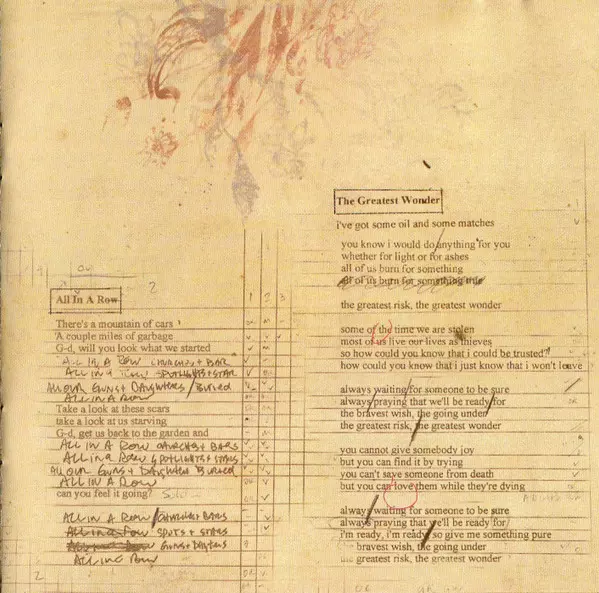 All In A Row
1 2 3
There's a mountain of cars
A couple miles of garbage
G-d, will you look what we started
ALL IN A ROW CHURCHES + BAR
ALL IN A ROW SPOTLIGHTS + STAR
ALL OUR GUNS + DAUGHTERS / BURIED
ALL IN A ROW
Take a look at these scars
take a look at us starving
G-d, get us back to the garden and
ALL IN A ROW CHURCHES + BARS
ALL IN A ROW SPOTLIGHTS + STARS
ALL OUR GUNS + DAUGHTERS BURIED
ALL IN A ROW
can you feel it going? Solo
ALL IN A ROW / CHURCHES + BARS
ALL IN A ROW SPOTS + STARS
GUNS + DAUTERS
ALL IN A ROW
2
The Greatest Wonder
i've got some oil and some matches
you know i would do anything for you
whether for light or for ashes
all of us burn for something
all of us burn for something true
the greatest risk, the greatest wonder
some of the time we are stolen
most of us live our lives as thieves
so how could you know that i could be trusted?
how could you know that i just know that i won't leave
always waiting for someone to be sure
always praying that we'll be ready for
the bravest wish, the going under
the greatest risk, the greatest wonder
you cannot give somebody joy
but you can find it by trying
you can't save someone from death
but you can love them while they're dying
always waiting for someone to be sure
always praying that we'll be ready for
i'm ready, i'm ready so give me something pure
the bravest wish, the going under
the greatest risk, the greatest wonder